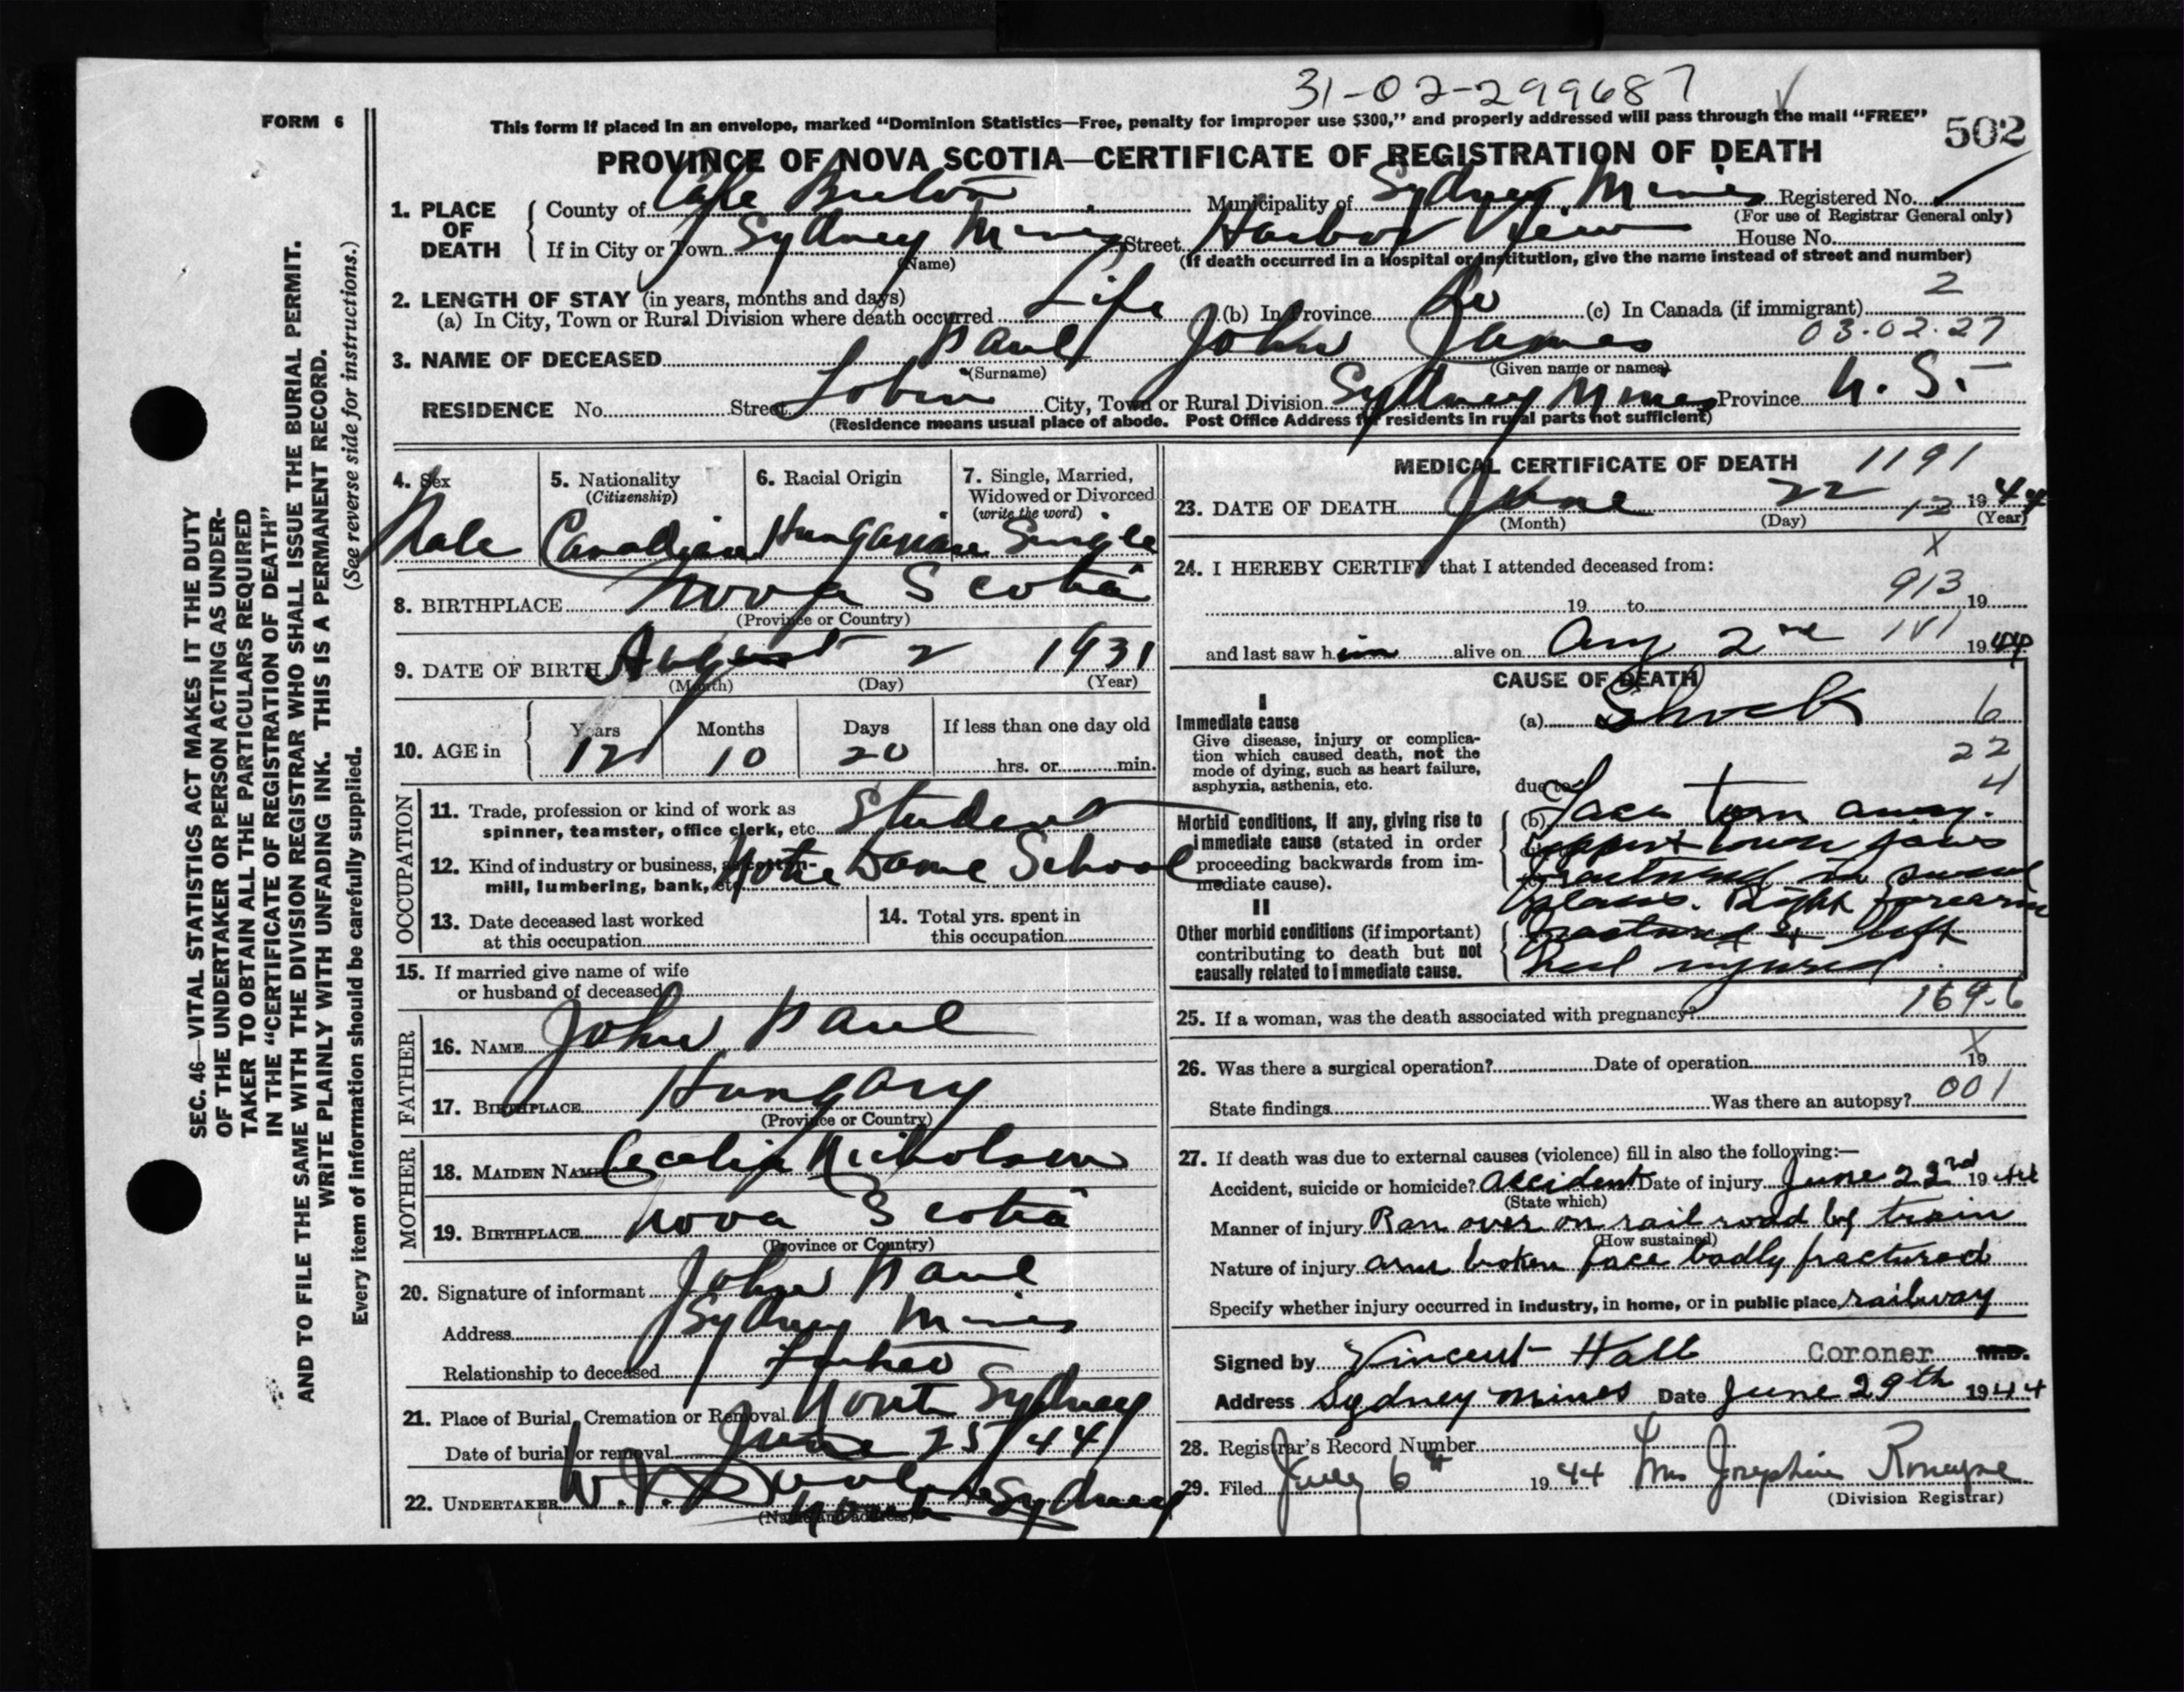 31-02-299687
FORM 6
This form if placed in an envelope, marked "Dominion Statistics—Free, penalty for improper use $300," and properly addressed will pass through the mail "FREE"
502
PROVINCE OF NOVA SCOTIA—CERTIFICATE OF REGISTRATION OF DEATH
1. PLACE OF DEATH
County of Cape Breton Municipality of Sydney Mines Registered No.
(For use of Registrar General only)
If in City or Town Sydney Mines Street Harbor View House No.
(Name) (If death occurred in a hospital or institution, give the name instead of street and number)
2. LENGTH OF STAY (in years, months and days)
(a) In City, Town or Rural Division where death occurred Life (b) In Province Do (c) In Canada (if immigrant) 2
03.02.27
3. NAME OF DECEASED Paul John James
(Surname) (Given name or names)
RESIDENCE No. Street City, Town or Rural Division Sydney Mines Province N. S.
(Residence means usual place of abode. Post Office Address for residents in rural parts not sufficient)
4. Sex 5. Nationality (Citizenship) 6. Racial Origin 7. Single, Married, Widowed or Divorced (write the word)
Male Canadian Hungarian Single
8. BIRTHPLACE Nova Scotia
(Province or Country)
9. DATE OF BIRTH August 2 1931
(Month) (Day) (Year)
10. AGE in Years Months Days If less than one day old
12 10 20 hrs. or min.
OCCUPATION
11. Trade, profession or kind of work as spinner, teamster, office clerk, etc. Student
12. Kind of industry or business, as cotton-mill, lumbering, bank, etc. Notre Dame School
13. Date deceased last worked at this occupation
14. Total yrs. spent in this occupation
15. If married give name of wife or husband of deceased
FATHER
16. NAME John Paul
17. BIRTHPLACE Hungary
(Province or Country)
MOTHER
18. MAIDEN NAME Cecelia Nicholson
19. BIRTHPLACE Nova Scotia
(Province or Country)
20. Signature of informant John Paul
Address Sydney Mines
Relationship to deceased Father
21. Place of Burial, Cremation or Removal North Sydney
Date of burial or removal June 25/44
22. UNDERTAKER
North Sydney
(Name and address)
MEDICAL CERTIFICATE OF DEATH 1191
23. DATE OF DEATH June 22 1944
(Month) (Day) (Year)
12
X
24. I HEREBY CERTIFY that I attended deceased from:
19 to 19
913
and last saw him alive on 2nd 1944
CAUSE OF DEATH
I
Immediate cause
Give disease, injury or complication which caused death, not the mode of dying, such as heart failure, asphyxia, asthenia, etc.
(a) Shock 6
22
4
due to
Morbid conditions, if any, giving rise to immediate cause (stated in order proceeding backwards from immediate cause).
(b) Face torn away.
upper & lower jaws
fractured in several
places. Right forearm
II
Other morbid conditions (if important) contributing to death but not causally related to immediate cause.
fractured & left
heel injured.
25. If a woman, was the death associated with pregnancy? 169-6
26. Was there a surgical operation? Date of operation 19
X
State findings Was there an autopsy? 001
27. If death was due to external causes (violence) fill in also the following:—
Accident, suicide or homicide? Accident Date of injury June 22nd 1944
(State which)
Manner of injury Ran over on rail road by train
(How sustained)
Nature of injury arm broken face badly fractured
Specify whether injury occurred in industry, in home, or in public place railway
Signed by Vincent Hall Coroner M.D.
Address Sydney Mines Date June 29th 1944
28. Registrar's Record Number
29. Filed July 6th 1944 Mrs Josephine Ronayne
(Division Registrar)
SEC. 46—VITAL STATISTICS ACT MAKES IT THE DUTY
OF THE UNDERTAKER OR PERSON ACTING AS UNDER-
TAKER TO OBTAIN ALL THE PARTICULARS REQUIRED
IN THE "CERTIFICATE OF REGISTRATION OF DEATH"
AND TO FILE THE SAME WITH THE DIVISION REGISTRAR WHO SHALL ISSUE THE BURIAL PERMIT.
WRITE PLAINLY WITH UNFADING INK. THIS IS A PERMANENT RECORD.
Every item of information should be carefully supplied. (See reverse side for instructions.)